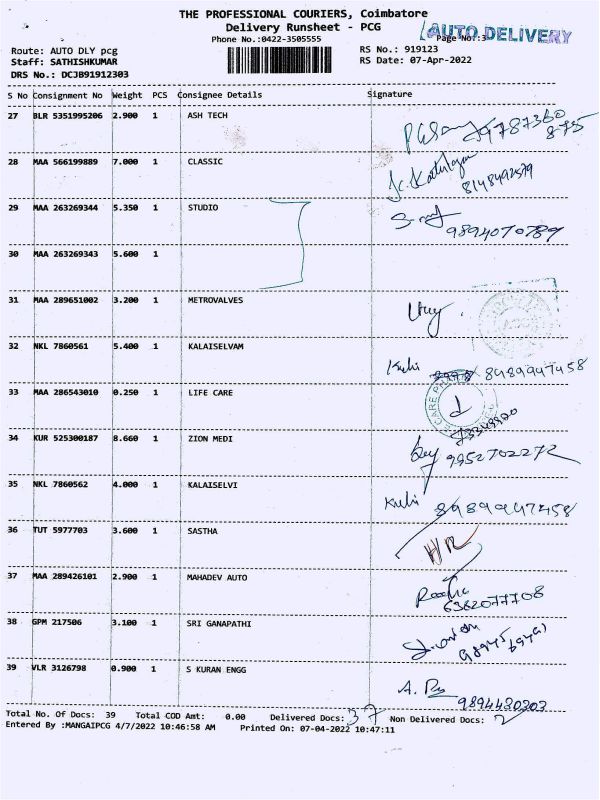 THE PROFESSIONAL COURIERS, Coimbatore
Delivery Runsheet - PCG
Phone No.:0422-3505555
Page No.:3
AUTO DELIVERY
Route: AUTO DLY pcg
RS No.: 919123
Staff: SATHISHKUMAR
RS Date: 07-Apr-2022
DRS No.: DCJB91912303
S No Consignment No Weight PCS Consignee Details Signature
27 BLR 5351995206 2.900 1 ASH TECH
28 MAA 566199889 7.000 1 CLASSIC
29 MAA 263269344 5.350 1 STUDIO
9894070789
30 MAA 263269343 5.600 1
31 MAA 289651002 3.200 1 METROVALVES
32 NKL 7860561 5.400 1 KALAISELVAM
8989947458
33 MAA 286543010 0.250 1 LIFE CARE
34 KUR 525300187 8.660 1 ZION MEDI
9952702272
35 NKL 7860562 4.000 1 KALAISELVI
8989947458
36 TUT 5977703 3.600 1 SASTHA
37 MAA 289426101 2.900 1 MAHADEV AUTO
6382077708
38 GPM 217506 3.100 1 SRI GANAPATHI
39 VLR 3126798 0.900 1 S KURAN ENGG
9894430303
Total No. Of Docs: 39 Total COD Amt: 0.00 Delivered Docs: 37 Non Delivered Docs: 2
Entered By :MANGAIPCG 4/7/2022 10:46:58 AM Printed On: 07-04-2022 10:47:11